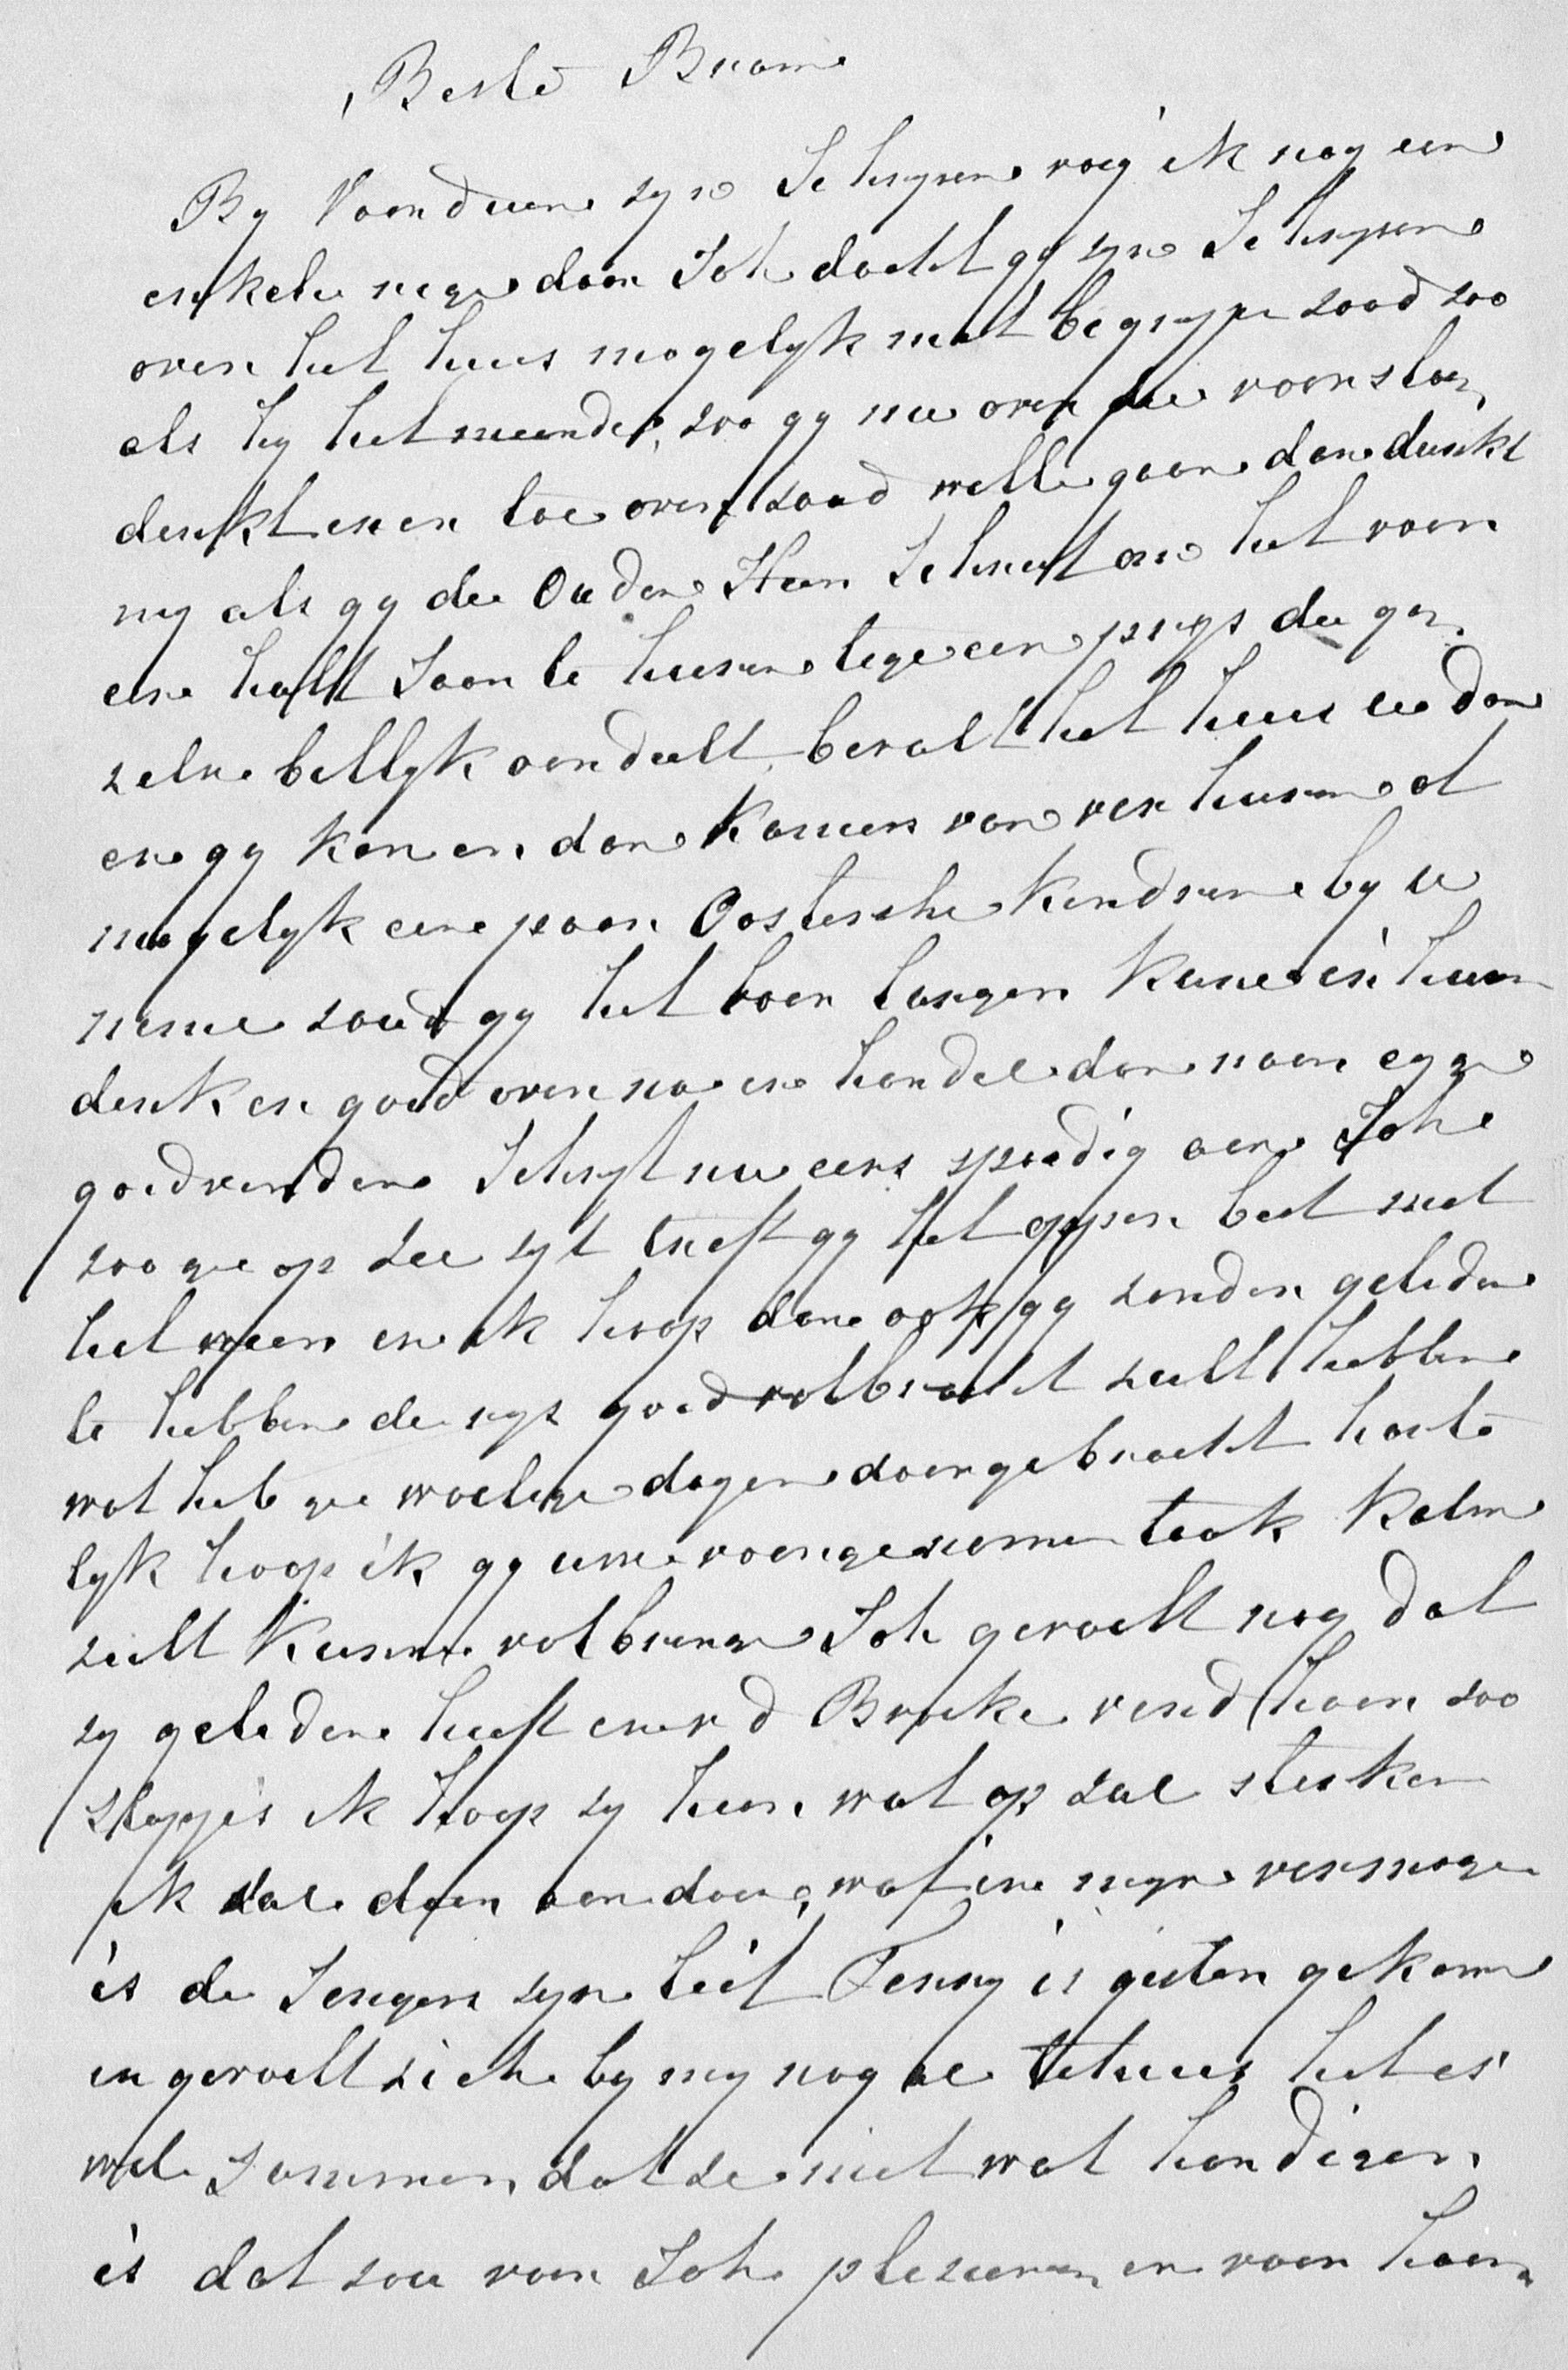 Beste Bram
By Voorduin zyn Schryven voeg ik nog een
enkele rege daar Joh dacht gy zyn Schryven
over het huis mogelyk niet begrype zood zoo
als hy het meende, zoo gy nu over die voorslag
denkt en er toe over zoud wille gaan dan dunkt
my als gy de Ouden Heer Schreef om het voor
een half Jaar te huren tege een prys die gy
zelve billyk oordeelt, bevalt het huis u dan
en gy kon er dan Kamers van verhuren of
mogelyk een paar Oostersche Kindren by u
neme zoud gy het voor langer Kune in huur
denk er goed over na en handel dan naar eyge
goedvinden Schryf nu eens spoedig aan Joh
zoo ge op zee zyt treft gy het opper best met
het weer en ik hoop dan ook gy zonder geleden
te hebben de rys goed volbracht zult hebben
wat heb ge woelige dagen doorgebracht harte
lyk hoop ik gy uwe voorgenomen taak Kalm
zult Kunne volbrenge Joh gevoelt nog dat
zy geleden heeft en v d Broeke vind haar zoo
slapjes ik hoop zy hier wat op zal sterken
ik zal er aan doen, wat in myn vermoge
is de Jongens zyn lief Fenny is gister gekome
en gevoelt zich by my nog al tehuis het is
wel Jammer dat ze niet wat handiger
is dat zou voor Joh plezierig en voor haar